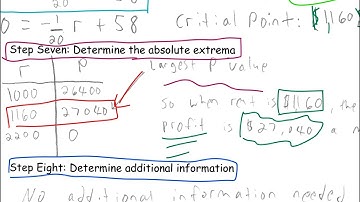 0 = -1/20 r + 58
Critical Point: $1,160
Step Seven: Determine the absolute extrema
r P
Largest P value
1000 26400
1160 27040
2200 0
so when rent is $1160, the
profit is $27,040 a m
Step Eight: Determine additional information
No additional information needed